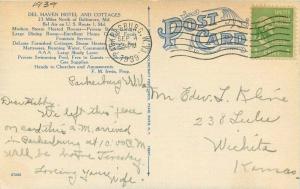 1939
DEL HAVEN HOTEL AND COTTAGES
23 Miles North of Baltimore, Md.
Bel Air on U. S. Route 1, Md.
Modern Steam Heated Rooms - Private Baths
Large Dining Room - Excellent Food
Fountain Service
Deluxe Furnished Cottages, Steam Heated
Mattresses, Running Water, Community
AAA
Private Swimming Pool, Free to Guests
Gas Supplies
Handy to Churches and Amusements
F. M. Irwin, Prop.
POST CARD
SEP 4
1939
Parkersburg W. Va
Dear Hubby,
We left this place
on card this a.m. arrived
in Parkersburg at 10:00 P.M.
will be home Tuesday.
Loving your
Wife
Mr Edw. L. Kline
238 Lulu
Wichita
Kansas